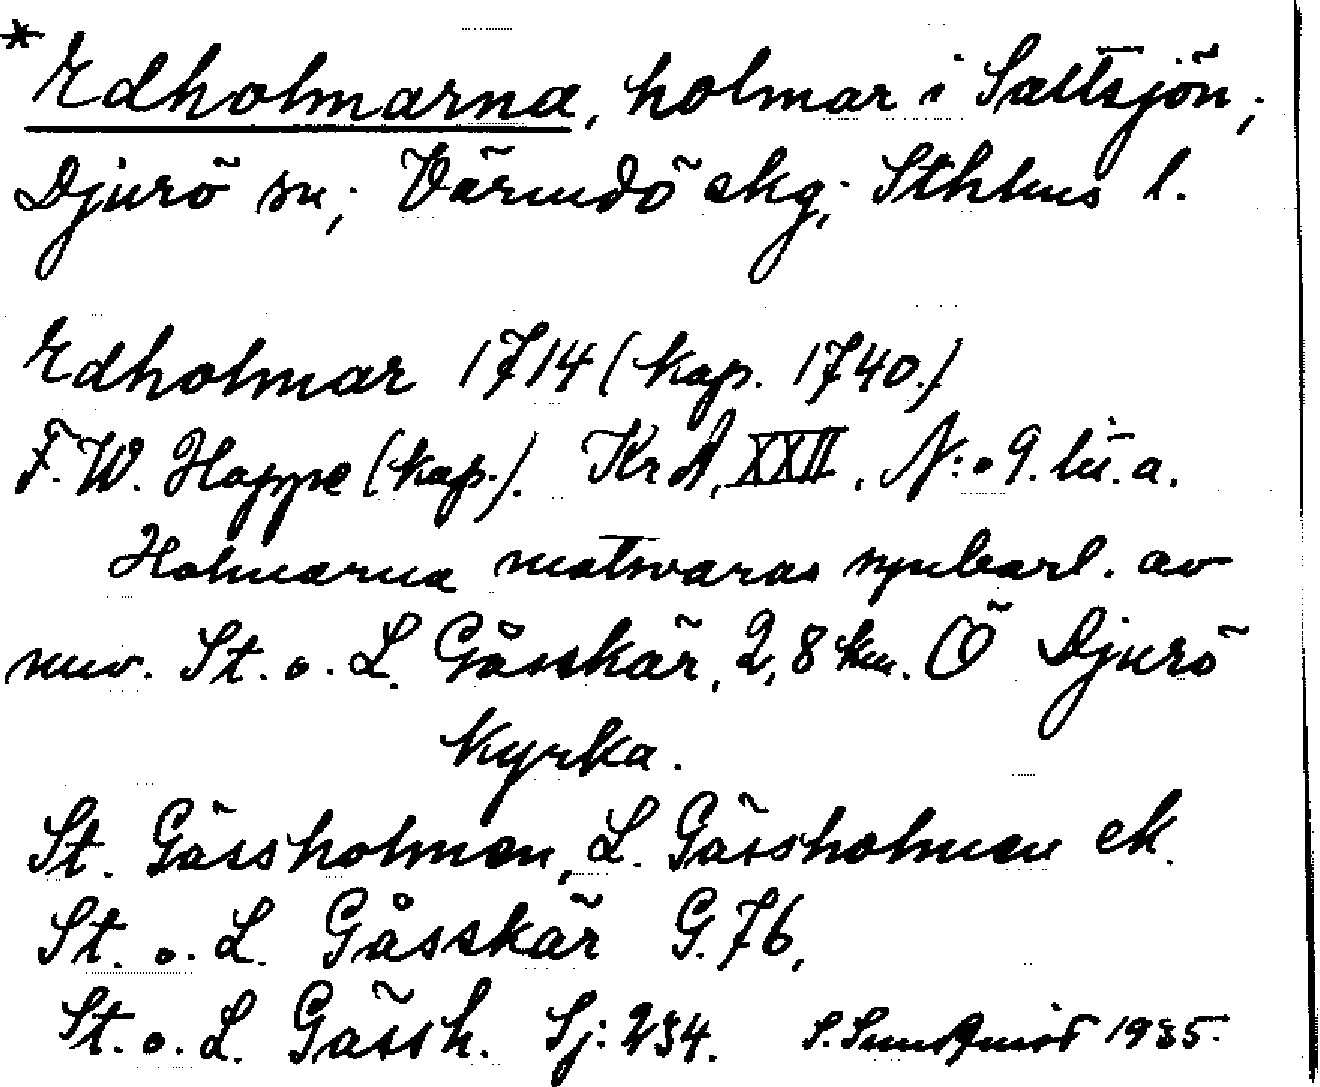 * Edholmarna, holmar i Saltsjön;
Djurö sn; Värmdö skg; Sthlms l.
Edholmar 1714 (kop. 1740.)
F. W. Hoppe (kop.). KrA, XXII, N:o 9. lit. a.
Holmarna motsvaras synbarl. av
nuv. St. o. L. Gåsskär, 2,8 km. Ö Djurö
kyrka.
St. Gässholmen, L. Gässholmen ek.
St. o. L. Gåsskär G. 76,
St. o. L. Gässh. Sj: 234. S. Sundqvist 1935.